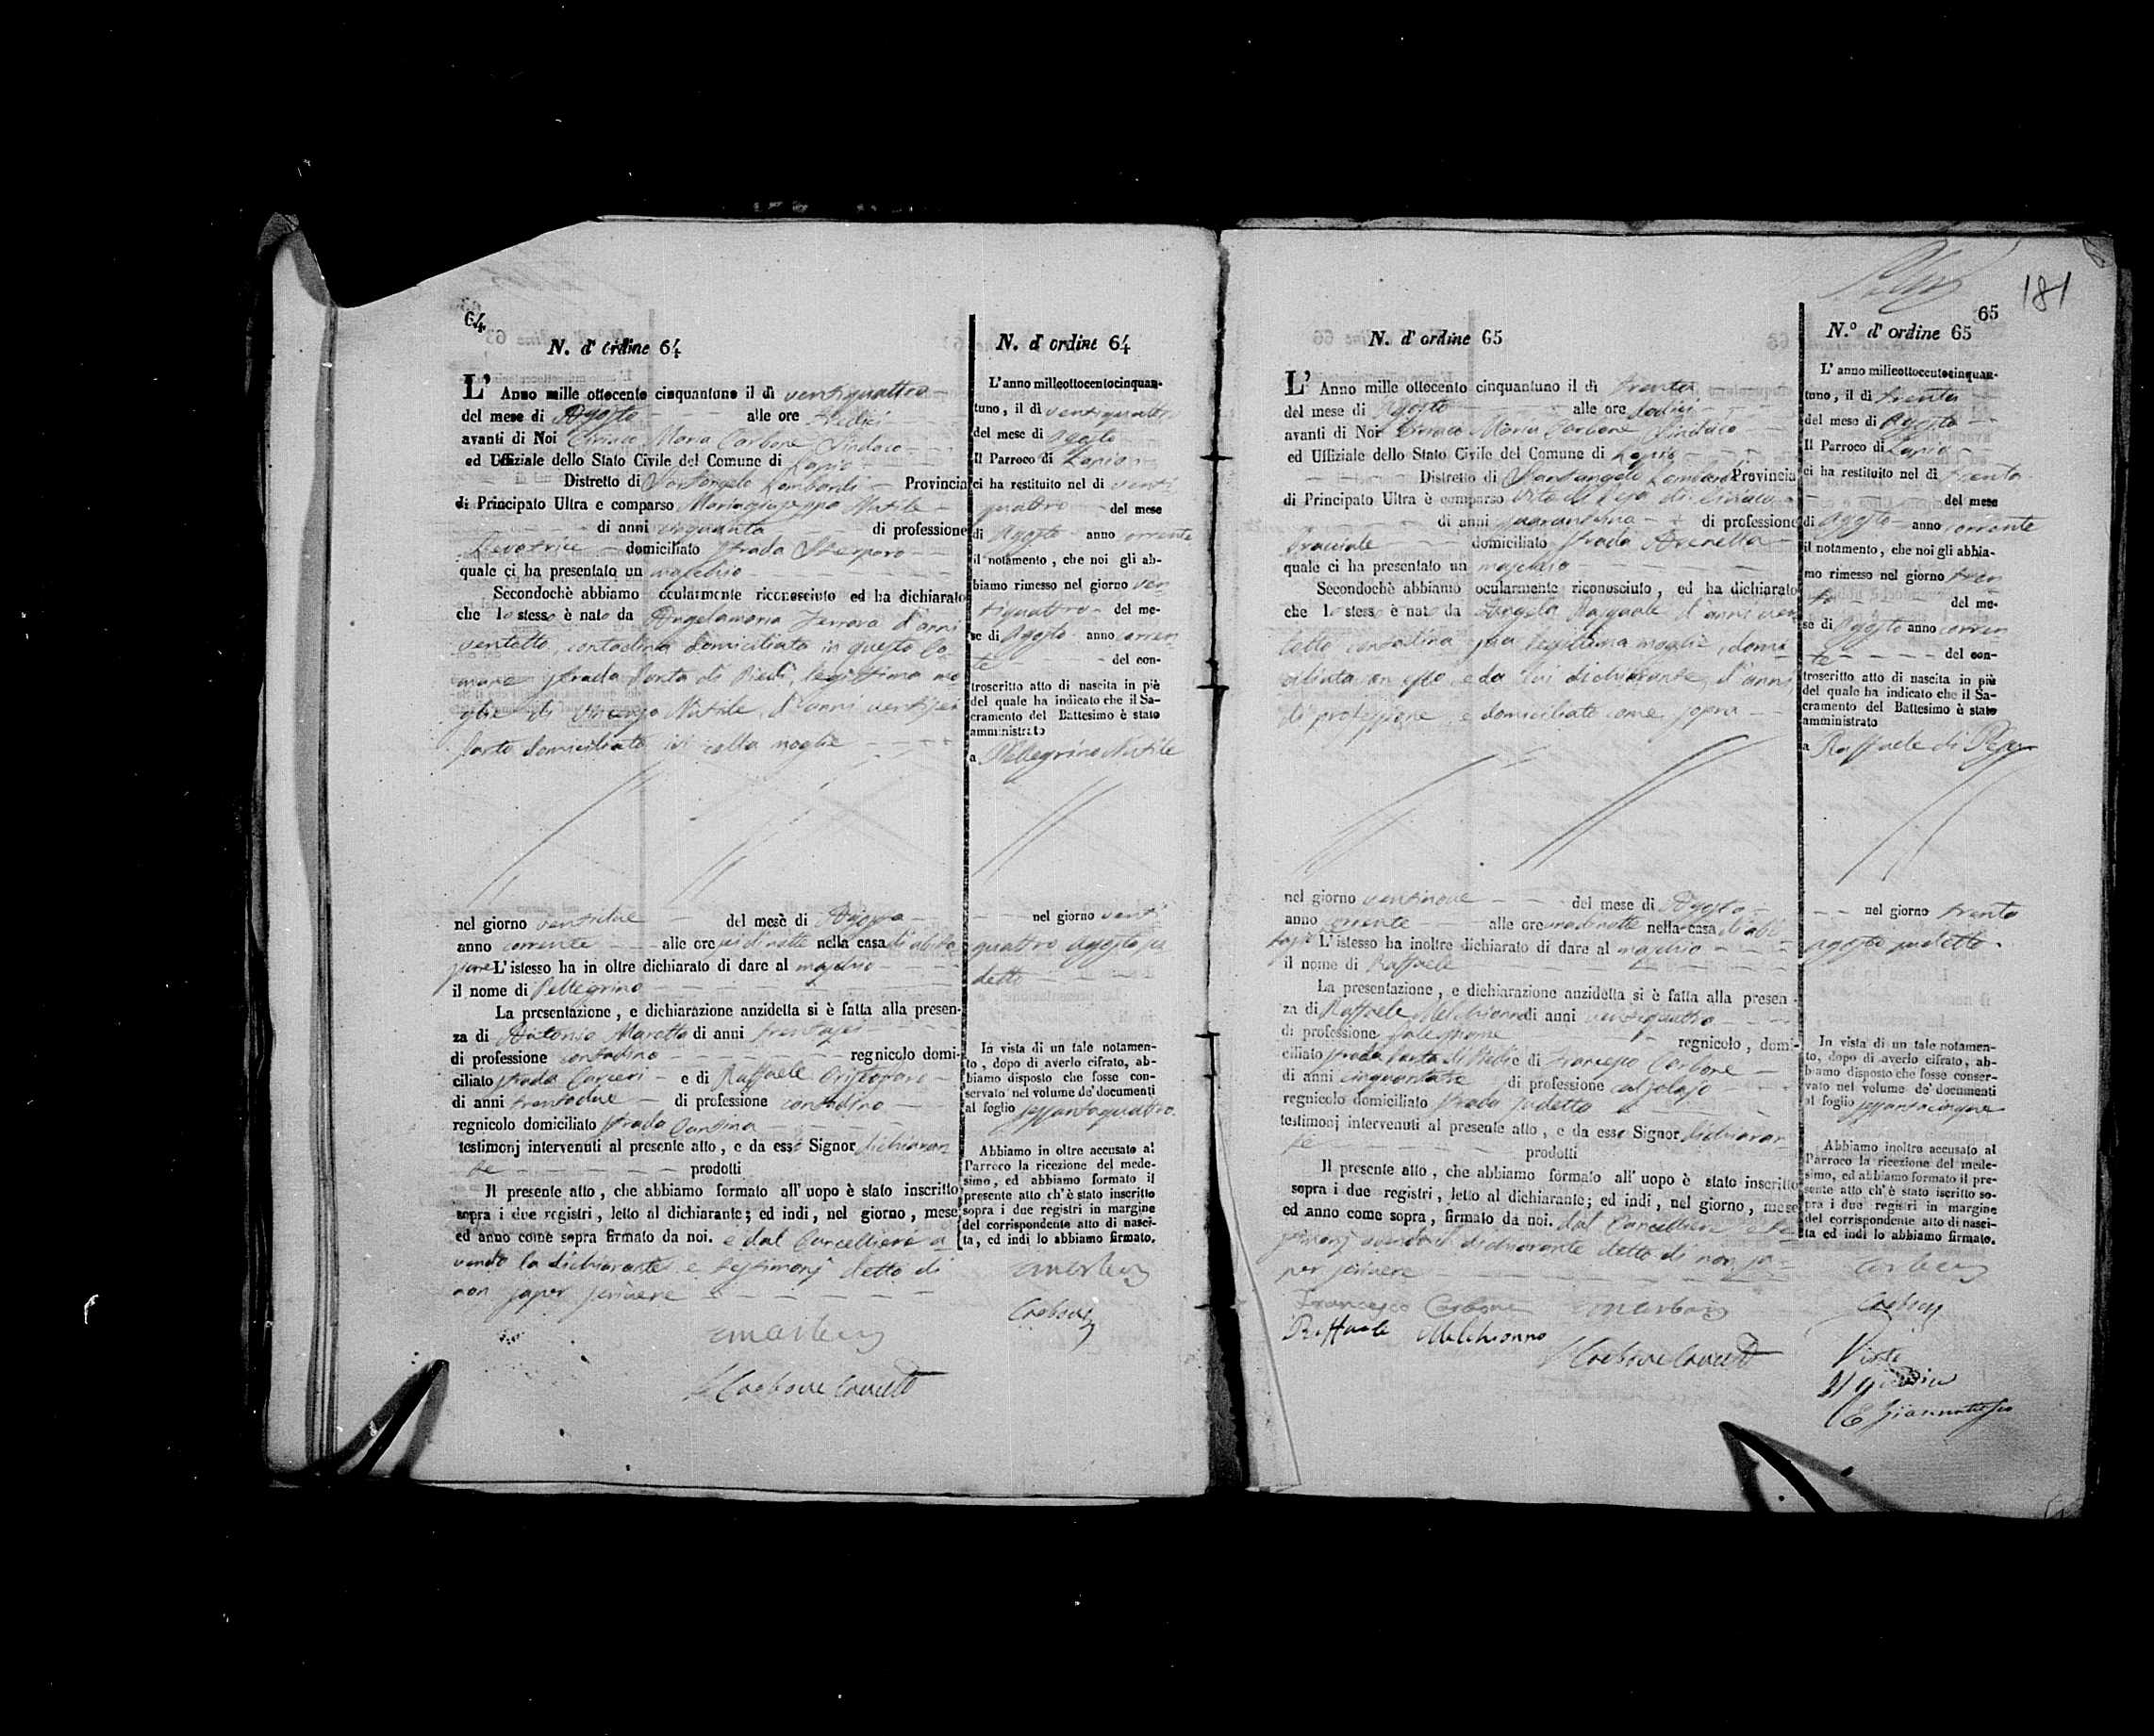 64
N. d' ordine 64
L' Anno mille ottocento cinquantuno il dì ventiquattro
del mese di Agosto alle ore tredici
avanti di Noi Ciriaco Maria Carbone Sindaco
ed Uffiziale dello Stato Civile del Comune di Lapio
Distretto di Santangelo Lombardi Provincia
di Principato Ultra e comparso Mariagiuseppa Nutile
di anni cinquanta di professione
Levatrice domiciliato strada
quale ci ha presentato un maschio
Secondochè abbiamo ocularmente riconosciuto ed ha dichiarato
che lo stesso è nato da Angelamaria Ferrara d'anni
ventotto, contadina domiciliata in questo Co-
mune strada Porta di Piedi, legittima mo-
glie di Vincenzo Nutile, d'anni ventisei
sarto domiciliato ivi colla moglie
nel giorno ventidue del mese di Agosto
anno corrente alle ore sei di notte nella casa di abita-
zione L'istesso ha in oltre dichiarato di dare al maschio
il nome di Pellegrino
La presentazione, e dichiarazione anzidetta si è fatta alla presen-
za di Antonio Maretta di anni trentasei
di professione contadino regnicolo domi-
ciliato strada Carceri e di Raffaele Cristofaro
di anni trentadue di professione contadino
regnicolo domiciliato strada
testimonj intervenuti al presente atto, e da esso Signor dichiaran-
te prodotti
Il presente atto, che abbiamo formato all' uopo è stato inscritto
sopra i due registri, letto al dichiarante; ed indi, nel giorno, mese
ed anno come sopra firmato da noi. e dal Cancelliere a-
vendo la dichiarante e testimonj detto di
non saper scrivere
N. d' ordine 64
L'anno milleottocentocinquan-
tuno, il dì ventiquattro
del mese di Agosto
Il Parroco di Lapio
ci ha restituito nel dì venti
quattro del mese
di Agosto anno corrente
il notamento, che noi gli ab-
biamo rimesso nel giorno ven
tiquattro del me-
se di Agosto anno corren
te del con-
troscritto atto di nascita in piè
del quale ha indicato che il Sa-
cramento del Battesimo è stato
amministrato
a Pellegrino Nutile
nel giorno venti
quattro agosto su
detto
In vista di un tale notamen-
to, dopo di averlo cifrato, ab-
biamo disposto che fosse con-
servato nel volume de' documenti
al foglio sessantaquattro
Abbiamo in oltre accusato al
Parroco la ricezione del mede-
simo, ed abbiamo formato il
presente atto ch'è stato inscritto
sopra i due registri in margine
del corrispondente atto di nasci-
ta, ed indi lo abbiamo firmato.
181
65
N. d' ordine 65
L' Anno mille ottocento cinquantuno il dì trenta
del mese di Agosto alle ore dodici
avanti di Noi Ciriaco Maria Carbone Sindaco
ed Uffiziale dello Stato Civile del Comune di Lapio
Distretto di Santangelo Lombardi Provincia
di Principato Ultra è comparso Vito di Pesa di Ciriaco
di anni di professione
bracciale domiciliato strada Arenella
quale ci ha presentato un maschio
Secondochè abbiamo ocularmente riconosciuto, ed ha dichiarato
che lo stesso è nato da Angela Pasquale d'anni ven
totto contadina sua legittima moglie, domi-
ciliata in esso, e da lui dichiarante, d'anni,
di professione, e domiciliato come sopra
nel giorno ventinove del mese di Agosto
anno corrente alle ore una di notte nella casa di abi-
L'istesso ha inoltre dichiarato di dare al maschio
il nome di Raffaele
La presentazione, e dichiarazione anzidetta si è fatta alla presen-
za di Raffaele Melchionno di anni ventiquattro
di professione falegname regnicolo, domi-
ciliato strada Porta di Piedi e di Francesco Carbone
di anni cinquantatre di professione calzolajo
regnicolo domiciliato strada sudetta
testimonj intervenuti al presente atto, e da esso Signor dichiaran-
te prodotti
Il presente atto, che abbiamo formato all' uopo è stato inscritto
sopra i due registri, letto al dichiarante; ed indi, nel giorno, mese
ed anno come sopra, firmato da noi. dal Cancelliere e te-
stimonj avendo il dichiarante detto di non sa-
per scrivere
Francesco Carbone
Raffaele Melchionno
N.° d' ordine 65
L' anno milleottocentocinquan-
tuno, il dì trenta
del mese di Agosto
Il Parroco di Lapio
ci ha restituito nel dì trenta
del mese
di Agosto anno corrente
il notamento, che noi gli abbia-
mo rimesso nel giorno tren
ta del me-
se di Agosto anno corren
te del con-
troscritto atto di nascita in piè
del quale ha indicato che il Sa-
cramento del Battesimo è stato
amministrato
a Raffaele di Pesa
nel giorno trenta
agosto sudetto.
In vista di un tale notamen-
to, dopo di averlo cifrato, ab-
biamo disposto che fosse conser-
vato nel volume de' documenti
al foglio sessantacinque
Abbiamo inoltre accusato al
Parroco la ricezione del mede-
simo, ed abbiamo formato il pre-
sente atto ch' è stato iscritto so-
pra i due registri in margine
del corrispondente atto di nasci-
ta ed indi lo abbiamo firmato.
Visto
Il Giudice